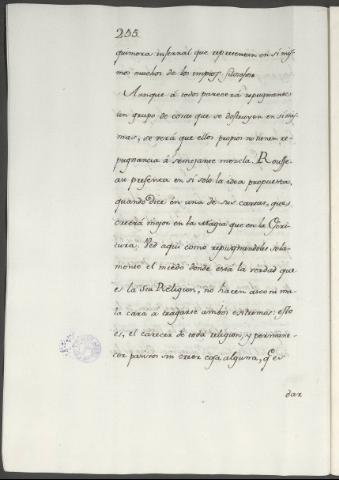 255
quimera infernal que representan en si mis-
mos muchos de los impios filosofos.
Aunque á todos parecerá repugnante
un grupo de cosas que se destruyen en si mis-
mas, se verá que ellos propios no tienen re-
pugnancia á semejante mezcla. Rousse-
au presenta en si solo la idea propuesta,
quando dice en una de sus cartas, que
creerá mejor en la magia que en la Escri-
tura. Ved aqui como repugnandoles sola-
mente el medio donde está la verdad que
es la Sta Religion, no hacen asco ni ma-
la cara a tragarse ambos extremos: esto
es, el carecer de toda religion, y permane-
cer parvos sin creer cosa alguna, qe es
dar